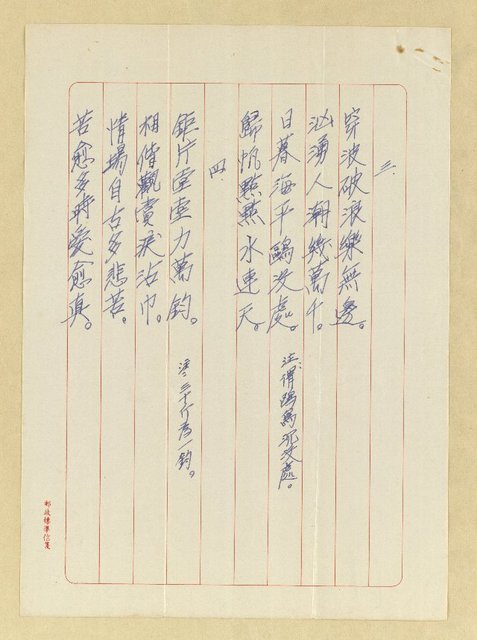 三.
穿波破浪樂無邊。
汹湧人潮幾萬千。
日暮海平鷗没處。
注:得鷗鳥沉没處。
歸帆點點水連天。
四.
鉅片重重力萬鈞。
注:三十斤為一鈞。
相偕觀賞淚沾巾。
情場自古多悲苦。
苦愈多時愛愈真。
郵政標準信箋